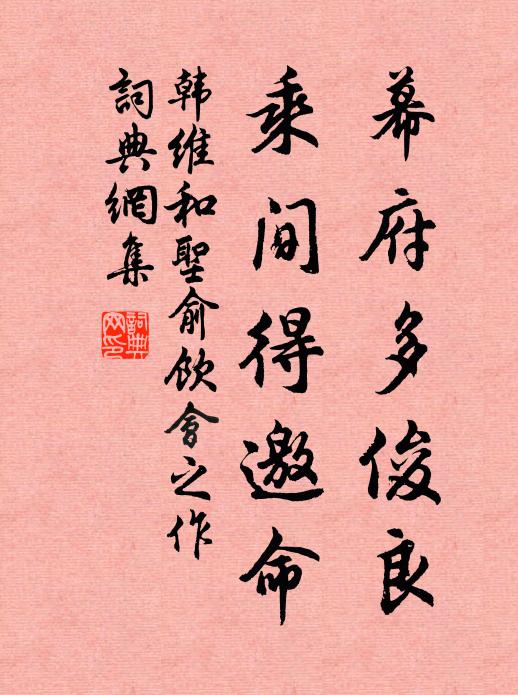 幕府多俊良
乘间得邀命
韩维和聖俞饮會之作
詞典網集
詞典網印